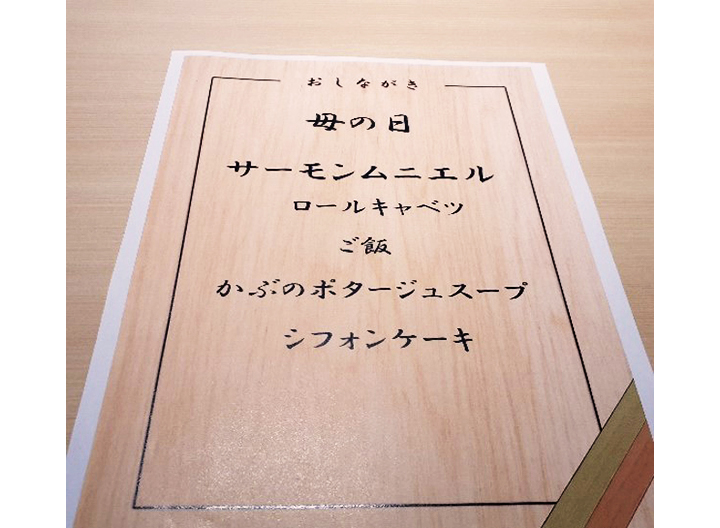 おしながき
母の日
サーモンムニエル
ロールキャベツ
ご飯
かぶのポタージュスープ
シフォンケーキ